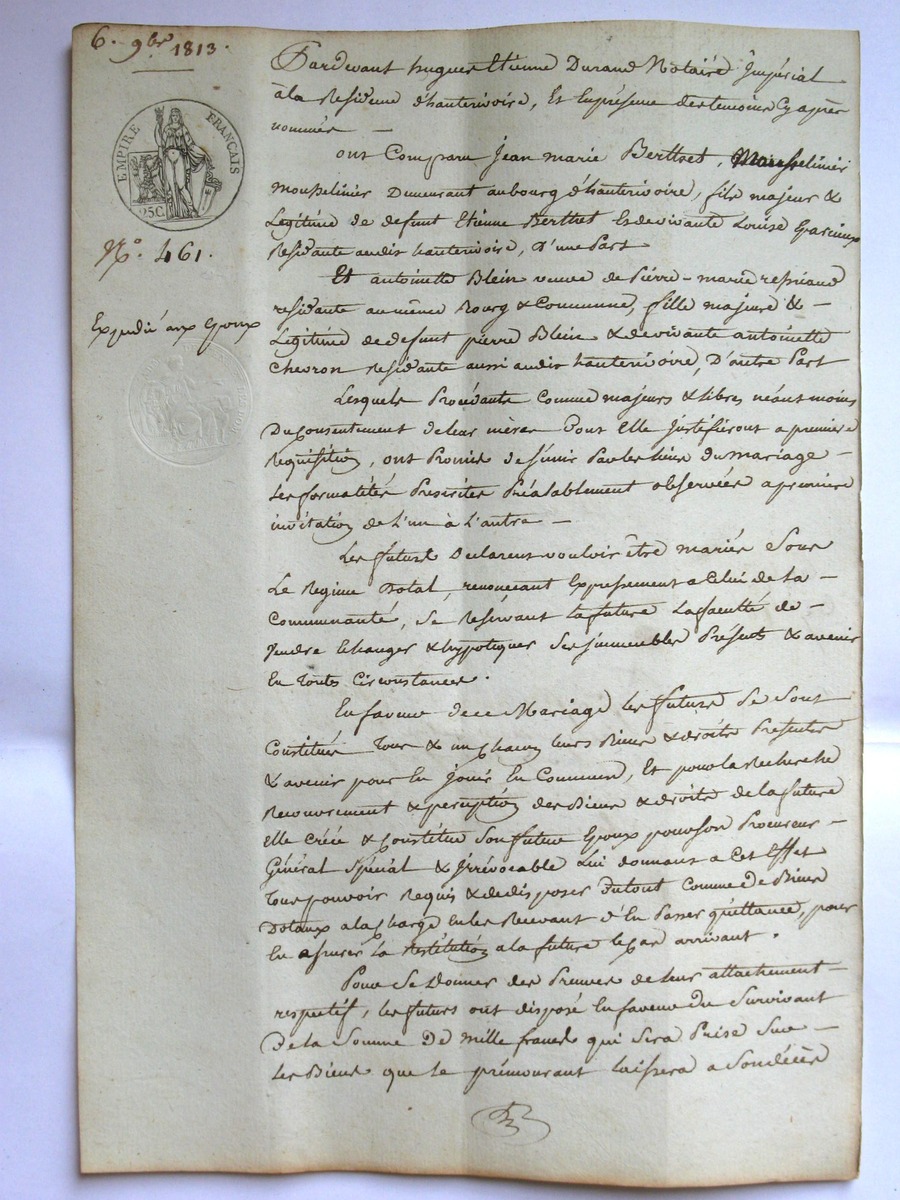 6. 9bre 1813.
EMPIRE FRANÇAIS
25C.
N.° 461.
Expedié aux Epoux
Pardevant hugues Etienne Durand Notaire Impérial
à la Residence d'hauterivoire, Et En présence des temoins Cy après
nommés —
ont Comparu Jean marie Berthet,
mousselinier Demeurant au bourg d'hauterivoire, fils majeur &
Legitime de defunt Etienne Berthet & de vivante Louise
Residante audit hauterivoire, D'une Part
Et antoinette Blein veuve de Pierre-marie
residante au même Bourg & Commune, fille majeure & —
Legitime de defunt pierre Blein & de vivante antoinette
Chevron Residante aussi audit hauterivoire, D'autre Part
Lesquels Procédants Comme majeurs & libres néantmoins
Du Consentement de leur mères Dont Elle justifieront a premiere
Requisition, ont Promis de s'unir Par les liens du mariage —
les formalités Prescrites Préalablement observées a premiere
invitation de L'un à L'autre —
Les futurs Declarent vouloir être mariés Sous
Le Regime Dotal, renoncant Expressement a Celui de la —
Communauté, Se Reservant la future la faculté de —
Vendre Echanger & hypotequer Ses immeubles Présents & avenir
En Toutes Circonstances.
En faveur de ce Mariage les futurs Se Sont
Constitués Tous & un chacun leurs Biens & droits Presents
& avenir pour En jouir En Commun, Et pour la Recherche
Recouvrement & perception des Biens & droits de la future
Elle créé & Constitue Son futur Epoux pour son Procureur —
Général Spécial & Irrévocable Lui donnant a Cet Effet
Tous pouvoir Requis & de disposer Du tout Comme de Biens
Dotaux a la Charge En les Recevant d'En Passer quittance, pour
En assurer la Restitution a la future le Cas arrivant.
Pour Se Donner des Preuves de leur attachement —
respectif, les futurs ont disposé En faveur du Survivant
De la Somme De mille francs qui Sera Prise Sur —
Les Biens que le prémourant laissera a Son décès